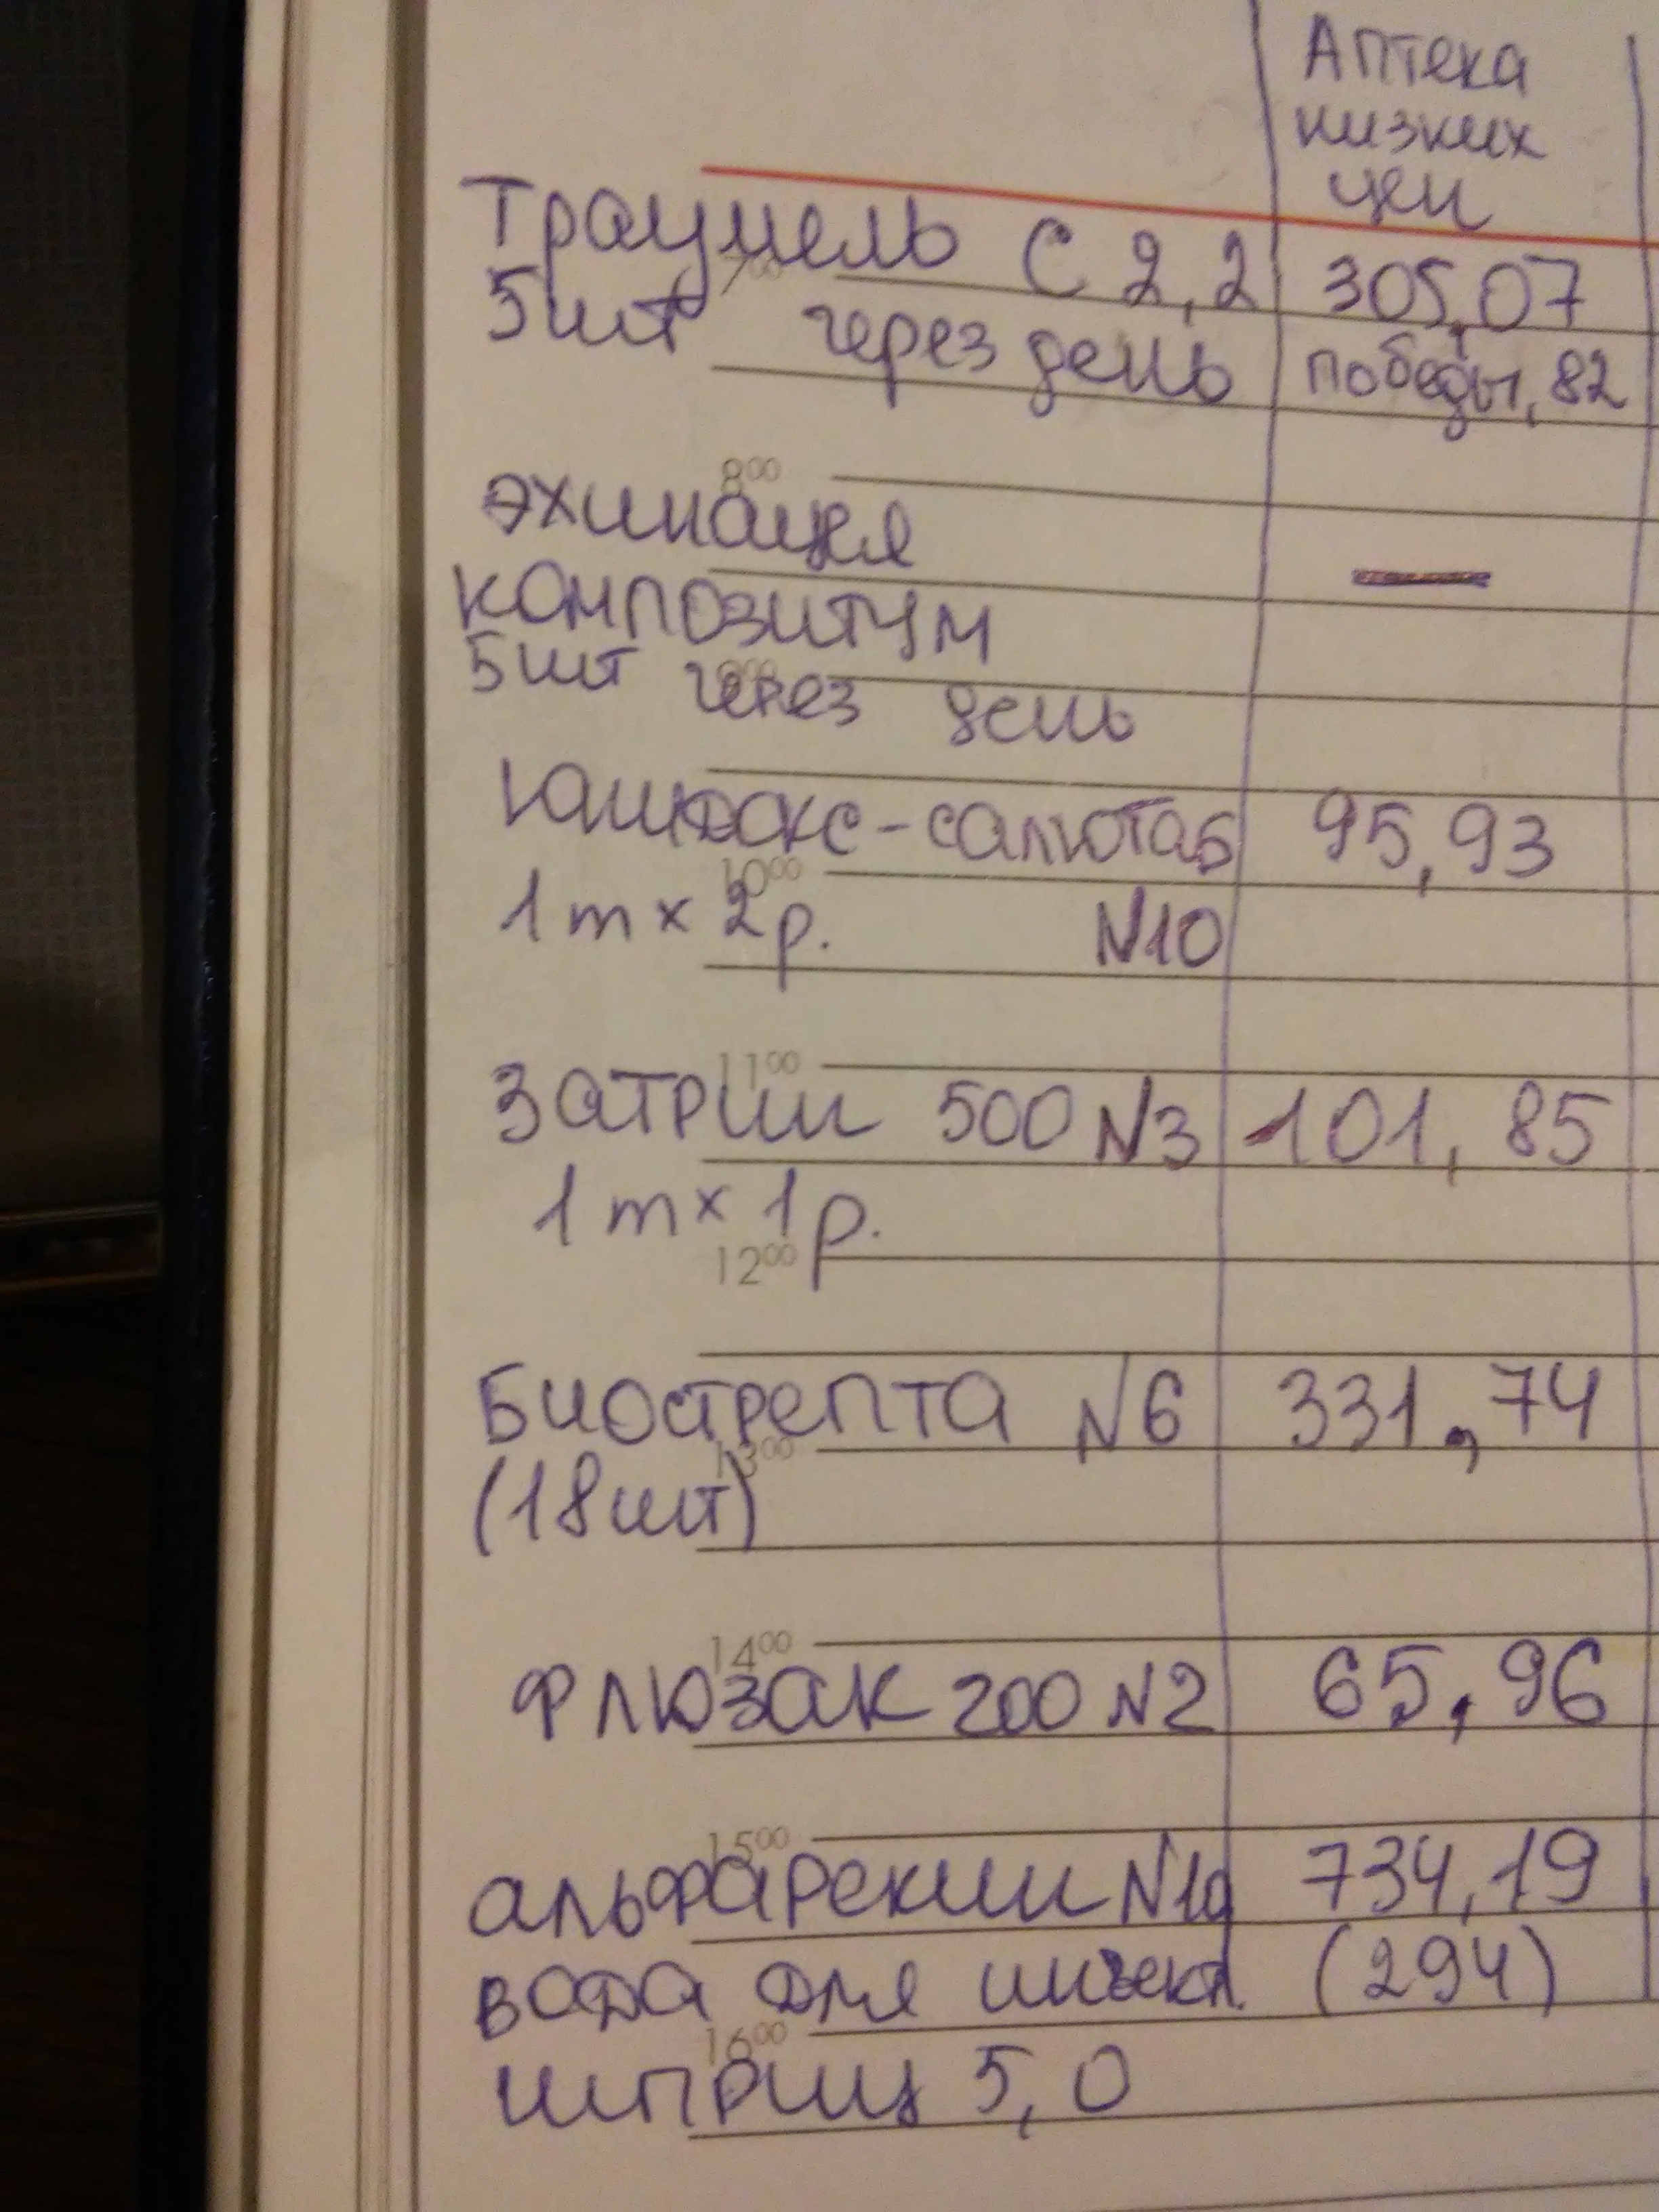 Аптека
низких
цен
Траумель С 2,2 305,07
7⁰⁰
5шт через день победы, 82
8⁰⁰
эхинацея
композитум —
9⁰⁰
5шт через день
Юнидокс-салютаб 95,93
10⁰⁰
1т × 2р. N10
11⁰⁰
Затрин 500 N3 101,85
1т × 1р.
12⁰⁰
Биострепта N6 331,74
13⁰⁰
(18шт)
14⁰⁰
Флюзак 200 N2 65,96
15⁰⁰
альфарекин N10 734,19
вода для инъекц. (294)
16⁰⁰
шприц 5,0